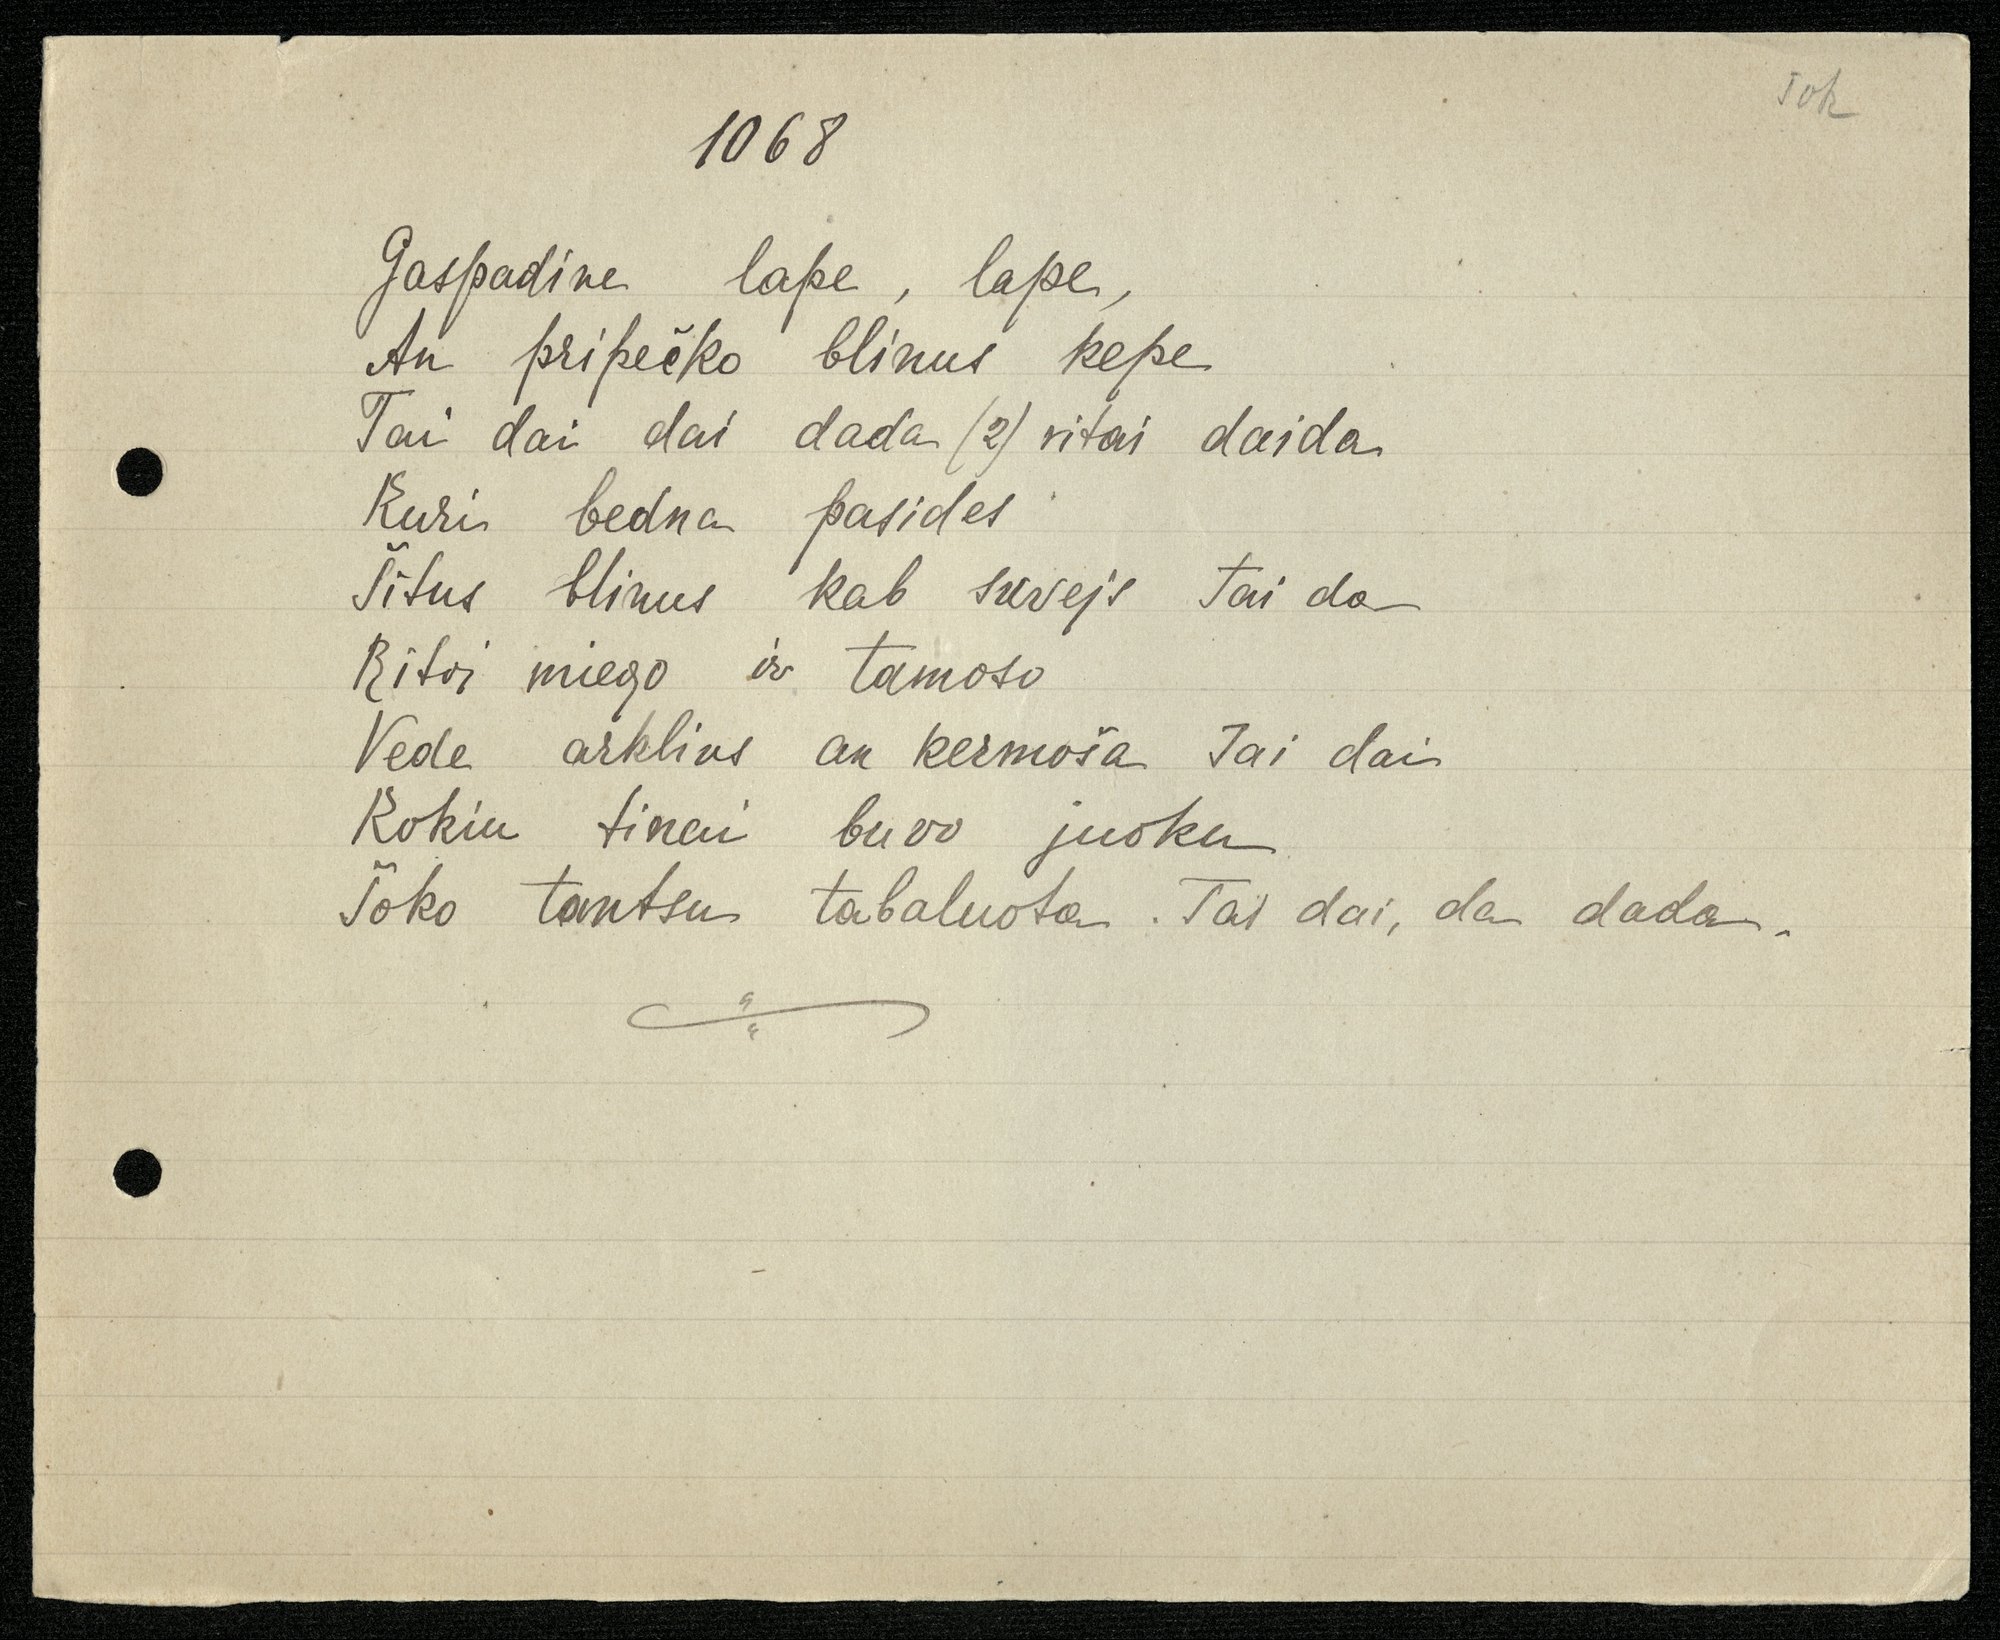 Šok
1068
Gaspadine lape, lape,
An pripečko blinus kepe
Tai dai dai dada (2) ritai daida
Kuri bedna pasides
Šitus blinus kab suvejs Tai da
Kiti miego iv tamoso
Vede arklius an kermoša Tai dai
Kokiu tinai buvo juoku
Šoko tantsu tabaluota. Tai dai, da dada.